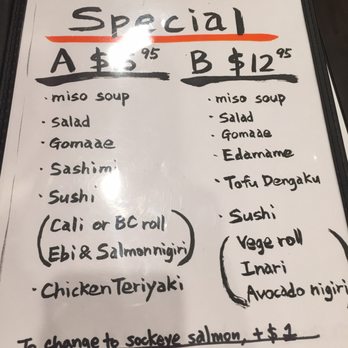 Special
A $ 95
B $12 95
· miso soup
· Salad
· Gomaae
· Sashimi
· Sushi
(Cali or BC roll
Ebi & Salmon nigiri)
· Chicken Teriyaki
· miso soup
· Salad
· Gomaae
· Edamame
· Tofu Dengaku
· Sushi
(Vege roll
Inari
Avocado nigiri)
To change to sockeye salmon, + $1